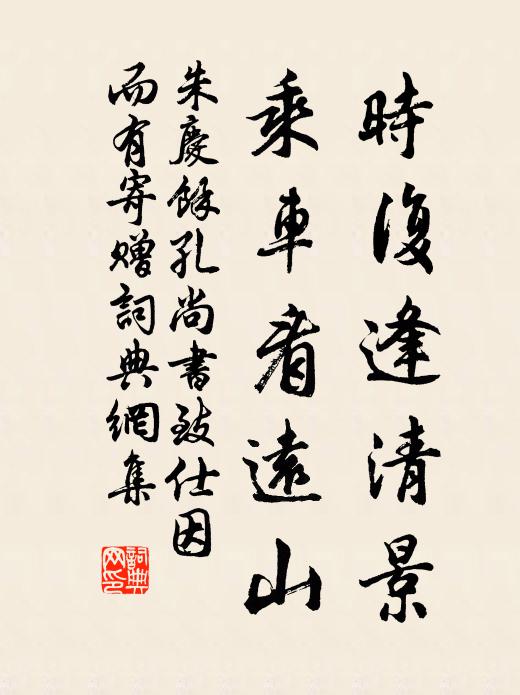 時復逢清景
乘車看遠山
朱慶餘孔尚書致仕因
而有寄贈詞典網集
詞典
网印